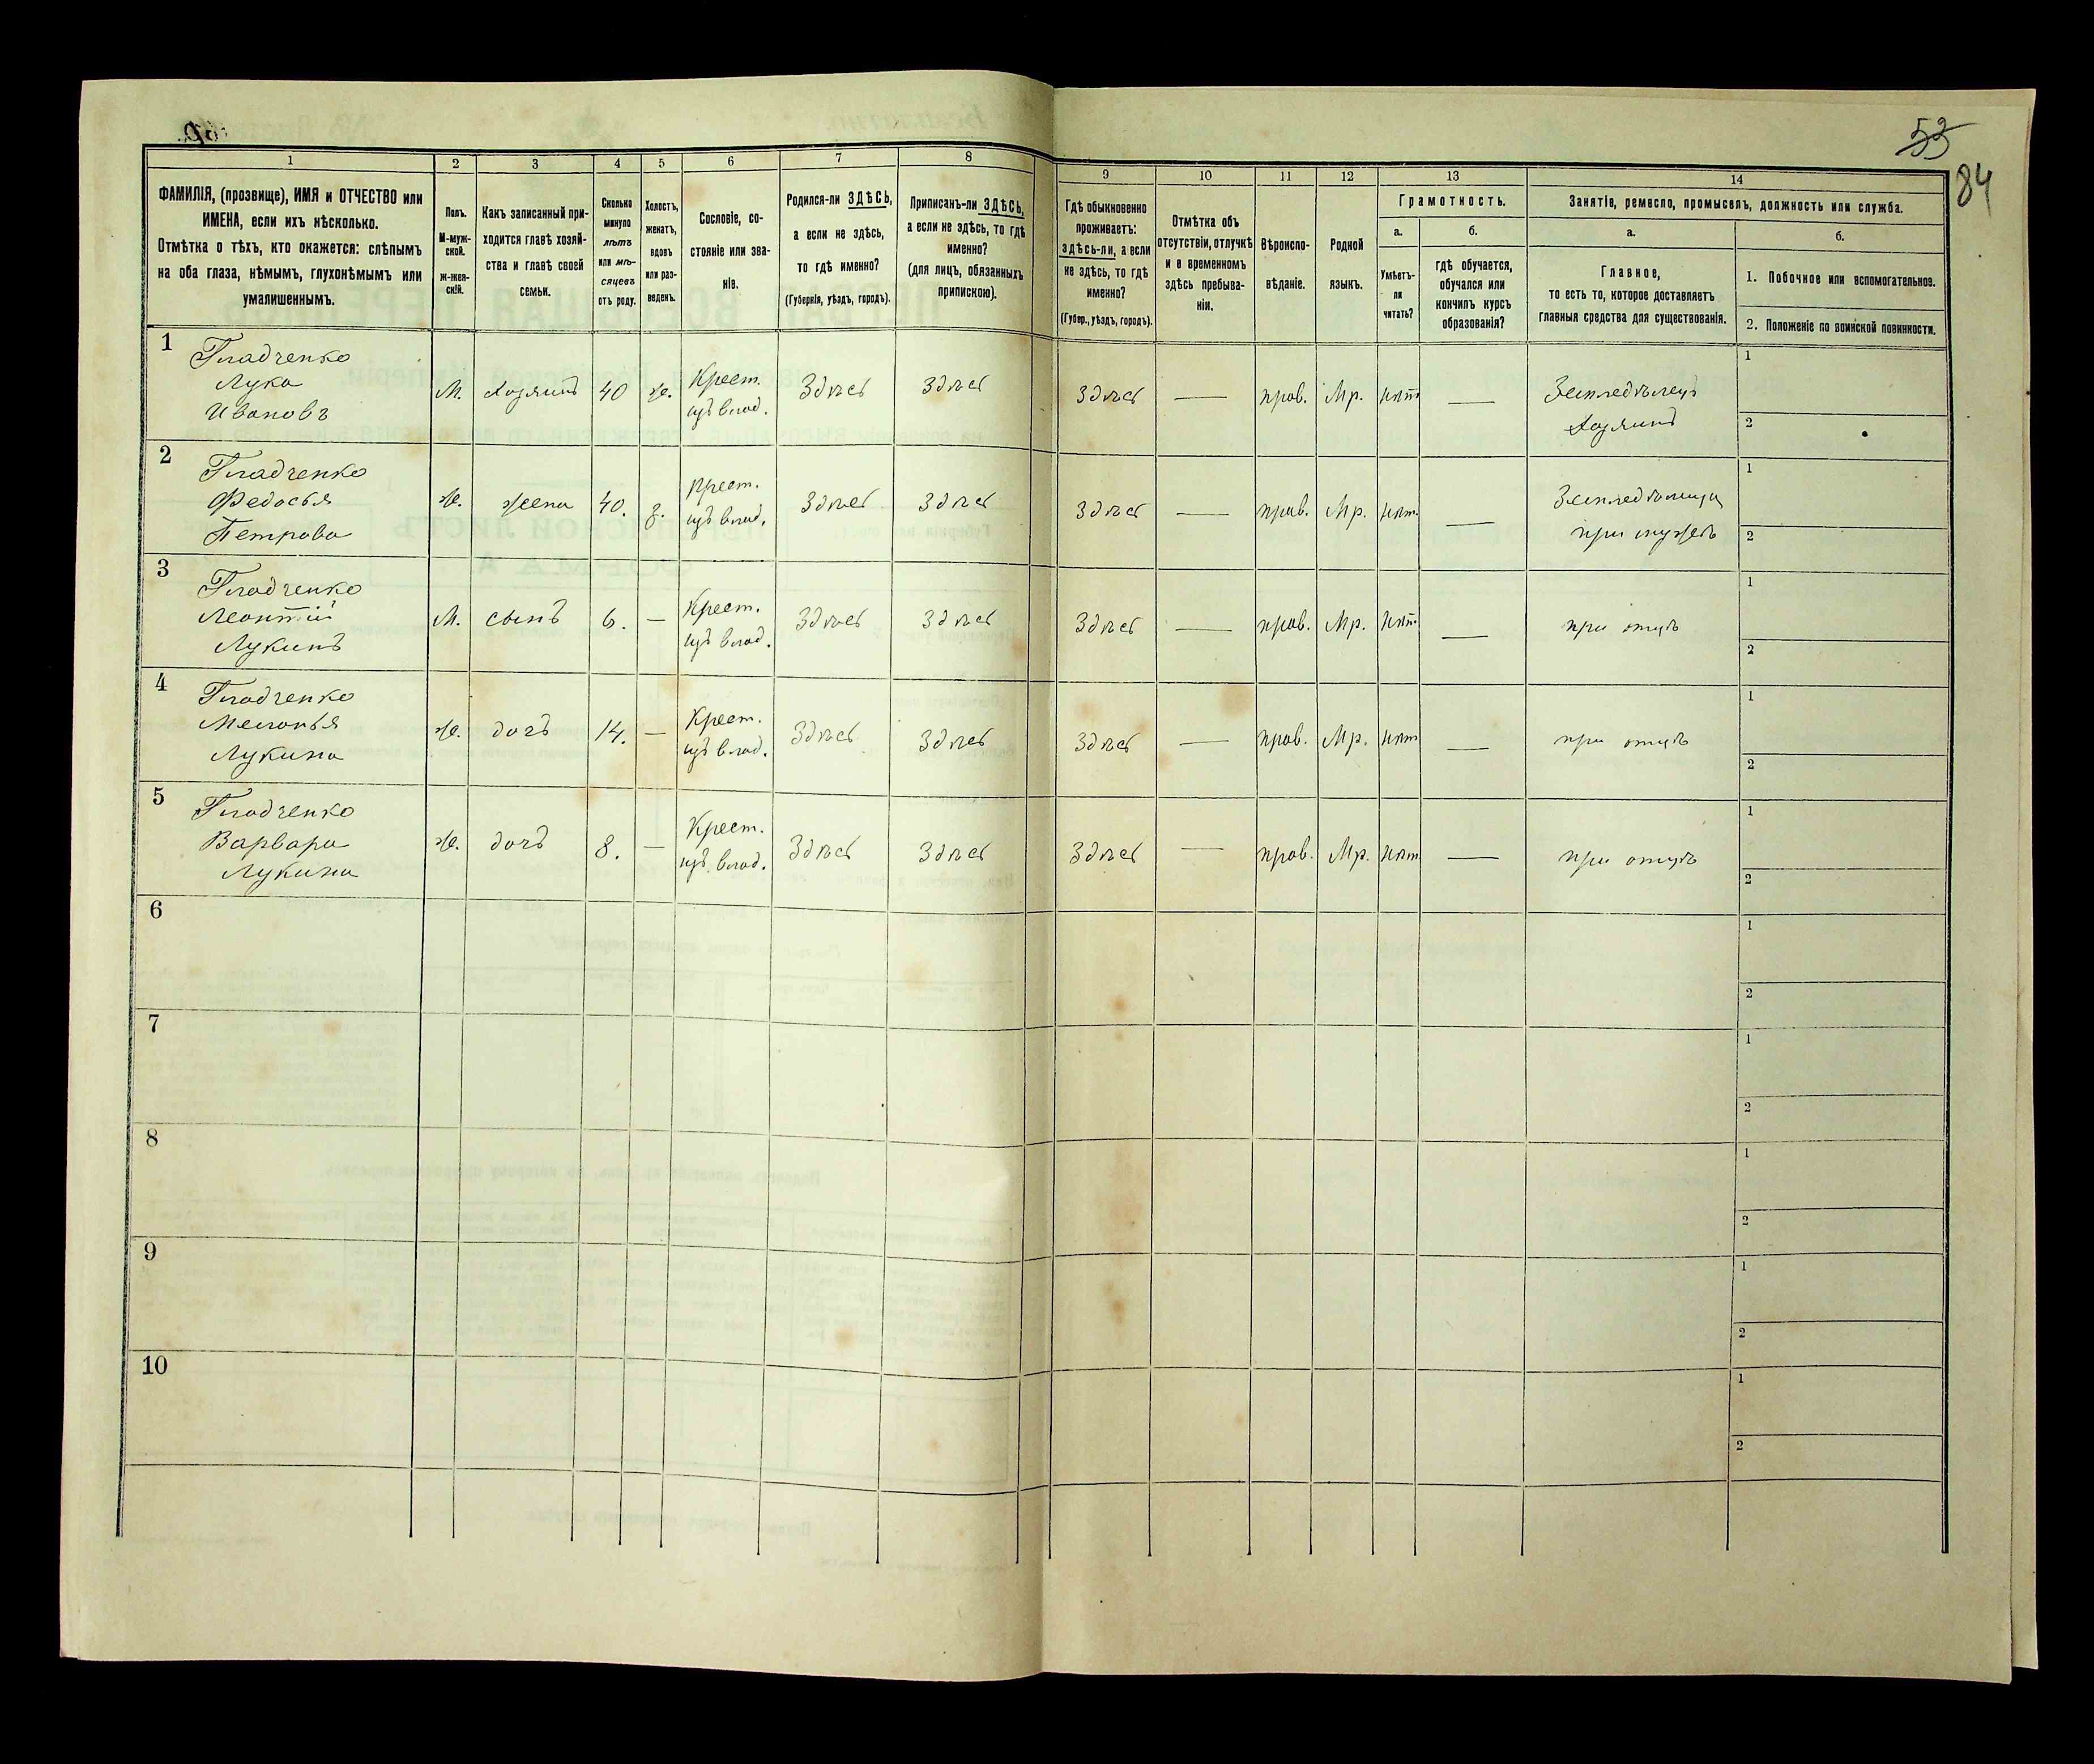 53
84
1
2
3
4
5
6
7
8
9
10
11
12
13
14
ФАМИЛІЯ, (прозвище), ИМЯ и ОТЧЕСТВО или
ИМЕНА, если ихъ нѣсколько.
Отмѣтка о тѣхъ, кто окажется: слѣпымъ
на оба глаза, нѣмымъ, глухонѣмымъ или
умалишеннымъ.
Полъ.
М-муж-
ской.
Ж-жен-
скій.
Какъ записанный при-
ходится главѣ хозяй-
ства и главѣ своей
семьи.
Сколько
минуло
лѣтъ
или мѣ-
сяцевъ
отъ роду.
Холостъ,
женатъ,
вдовъ
или раз-
веденъ.
Сословіе, со-
стояніе или зва-
ніе.
Родился-ли ЗДѢСЬ,
а если не здѣсь,
то гдѣ именно?
(Губернія, уѣздъ, городъ).
Приписанъ-ли ЗДѢСЬ,
а если не здѣсь, то гдѣ
именно?
(для лицъ, обязанныхъ
припискою).
Гдѣ обыкновенно
проживаетъ:
здѣсь-ли, а если
не здѣсь, то гдѣ
именно?
(Губер., уѣздъ, городъ).
Отмѣтка объ
отсутствіи, отлучкѣ
и о временномъ
здѣсь пребыва-
ніи.
Вѣроиспо-
вѣданіе.
Родной
языкъ.
Грамотность.
а.
Умѣетъ-
ли
читать?
б.
гдѣ обучается,
обучался или
кончилъ курсъ
образованія?
Занятіе, ремесло, промыселъ, должность или служба.
а.
Главное,
то есть то, которое доставляетъ
главныя средства для существованія.
б.
1. Побочное или вспомогательное.
2. Положеніе по воинской повинности.
1
Гладченко
Лука
Ивановъ
М.
Хозяинъ
40
ж.
Крест.
изъ влад.
Здѣсь
Здѣсь
Здѣсь
—
прав.
Мр.
нѣт
—
Земледѣлецъ
Хозяинъ
1
2
2
Гладченко
Федосья
Петрова
Ж.
жена
40.
з.
Крест.
изъ влад.
Здѣсь
Здѣсь
Здѣсь
—
прав.
Мр.
нѣт
—
Земледѣлица
при мужѣ
1
2
3
Гладченко
Леонтій
Лукинъ
М.
сынъ
6.
—
Крест.
изъ влад.
Здѣсь
Здѣсь
Здѣсь
—
прав.
Мр.
нѣт
—
при отцѣ
1
2
4
Гладченко
Меланья
Лукина
Ж.
дочъ
14.
—
Крест.
изъ влад.
Здѣсь
Здѣсь
Здѣсь
—
прав.
Мр.
нѣт
—
при отцѣ
1
2
5
Гладченко
Варвара
Лукина
Ж.
дочъ
8.
—
Крест.
изъ влад.
Здѣсь
Здѣсь
Здѣсь
—
прав.
Мр.
нѣт
—
при отцѣ
1
2
6
1
2
7
1
2
8
1
2
9
1
2
10
1
2